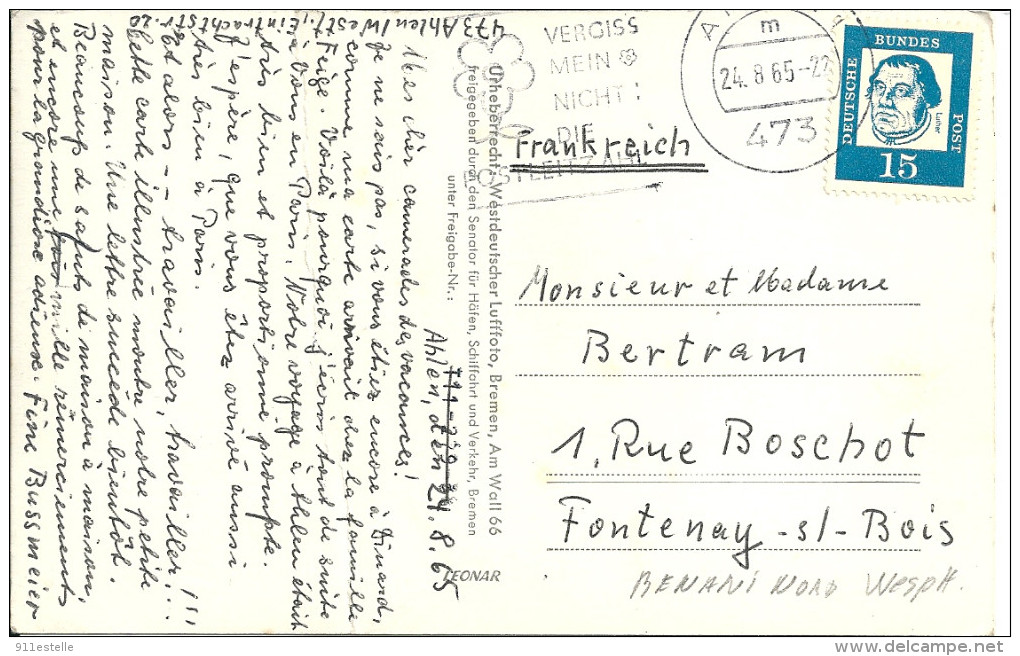 473 Ahlen/Westf., Eintrachtstr. 20
Ahlen, den 24.8.65
Mes chers camarades de vacances!
Je ne sais pas, si vous étiez encore à Dinard,
comme ma carte arrivait chez la famille
Feige. Voilà pourquoi j'écris tout de suite
à Vous en Paris. Notre voyage à Ahlen était
très bien et proportionné prompte.
J'espère, que vous êtez arrivé aussi
très bien à Paris.
Et alors — travailler, travailler!!!
Cette carte illustrée montre notre petite
maison. Une lettre succède bientôt.
Beaucoup de saluts de maison à maison,
et encore une fois mille rémerciements
pour la grandiose adieuse. Fine Bussmeier
Urheberrecht: Westdeutscher Luftfoto, Bremen, Am Wall 66
freigegeben durch den Senator für Häfen, Schiffahrt und Verkehr, Bremen
unter Freigabe-Nr.:
LEONAR
VERGISS
MEIN
NICHT:
DIE
POSTLEITZAHL
m
24.8.65-22
473
DEUTSCHE
BUNDES
POST
Luther
15
Frankreich
Monsieur et Madame
Bertram
1, Rue Boschot
Fontenay-s/-Bois
BENANI NORD Wesph.
911estelle
delcampe.net